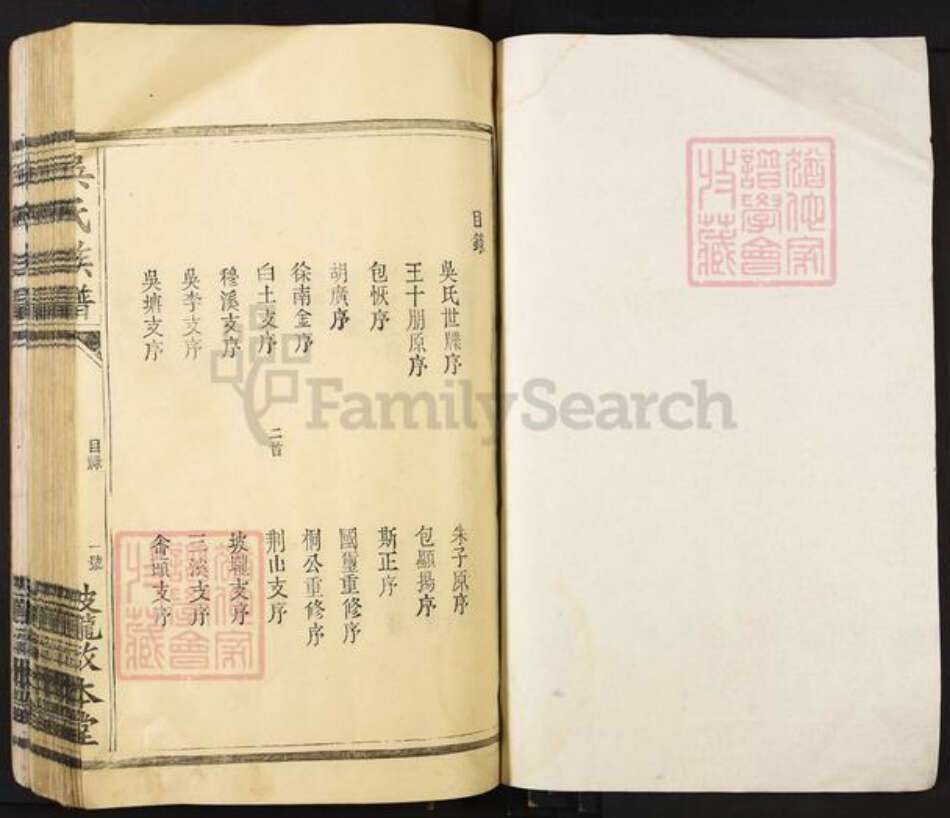 目錄
吳氏世牒序
朱子原序
王十朋原序
包顯揚序
包恢序
斯正序
胡廣序
國璽重修序
徐南金序
桐公重修序
白土支序 二首
荆山支序
穆溪支序
坡隴支序
吳李支序
三淡支序
吳塘支序
畬頭支序
吳氏族譜
目錄
一號
坡隴敦本堂
譜學會
收藏
FamilySearch